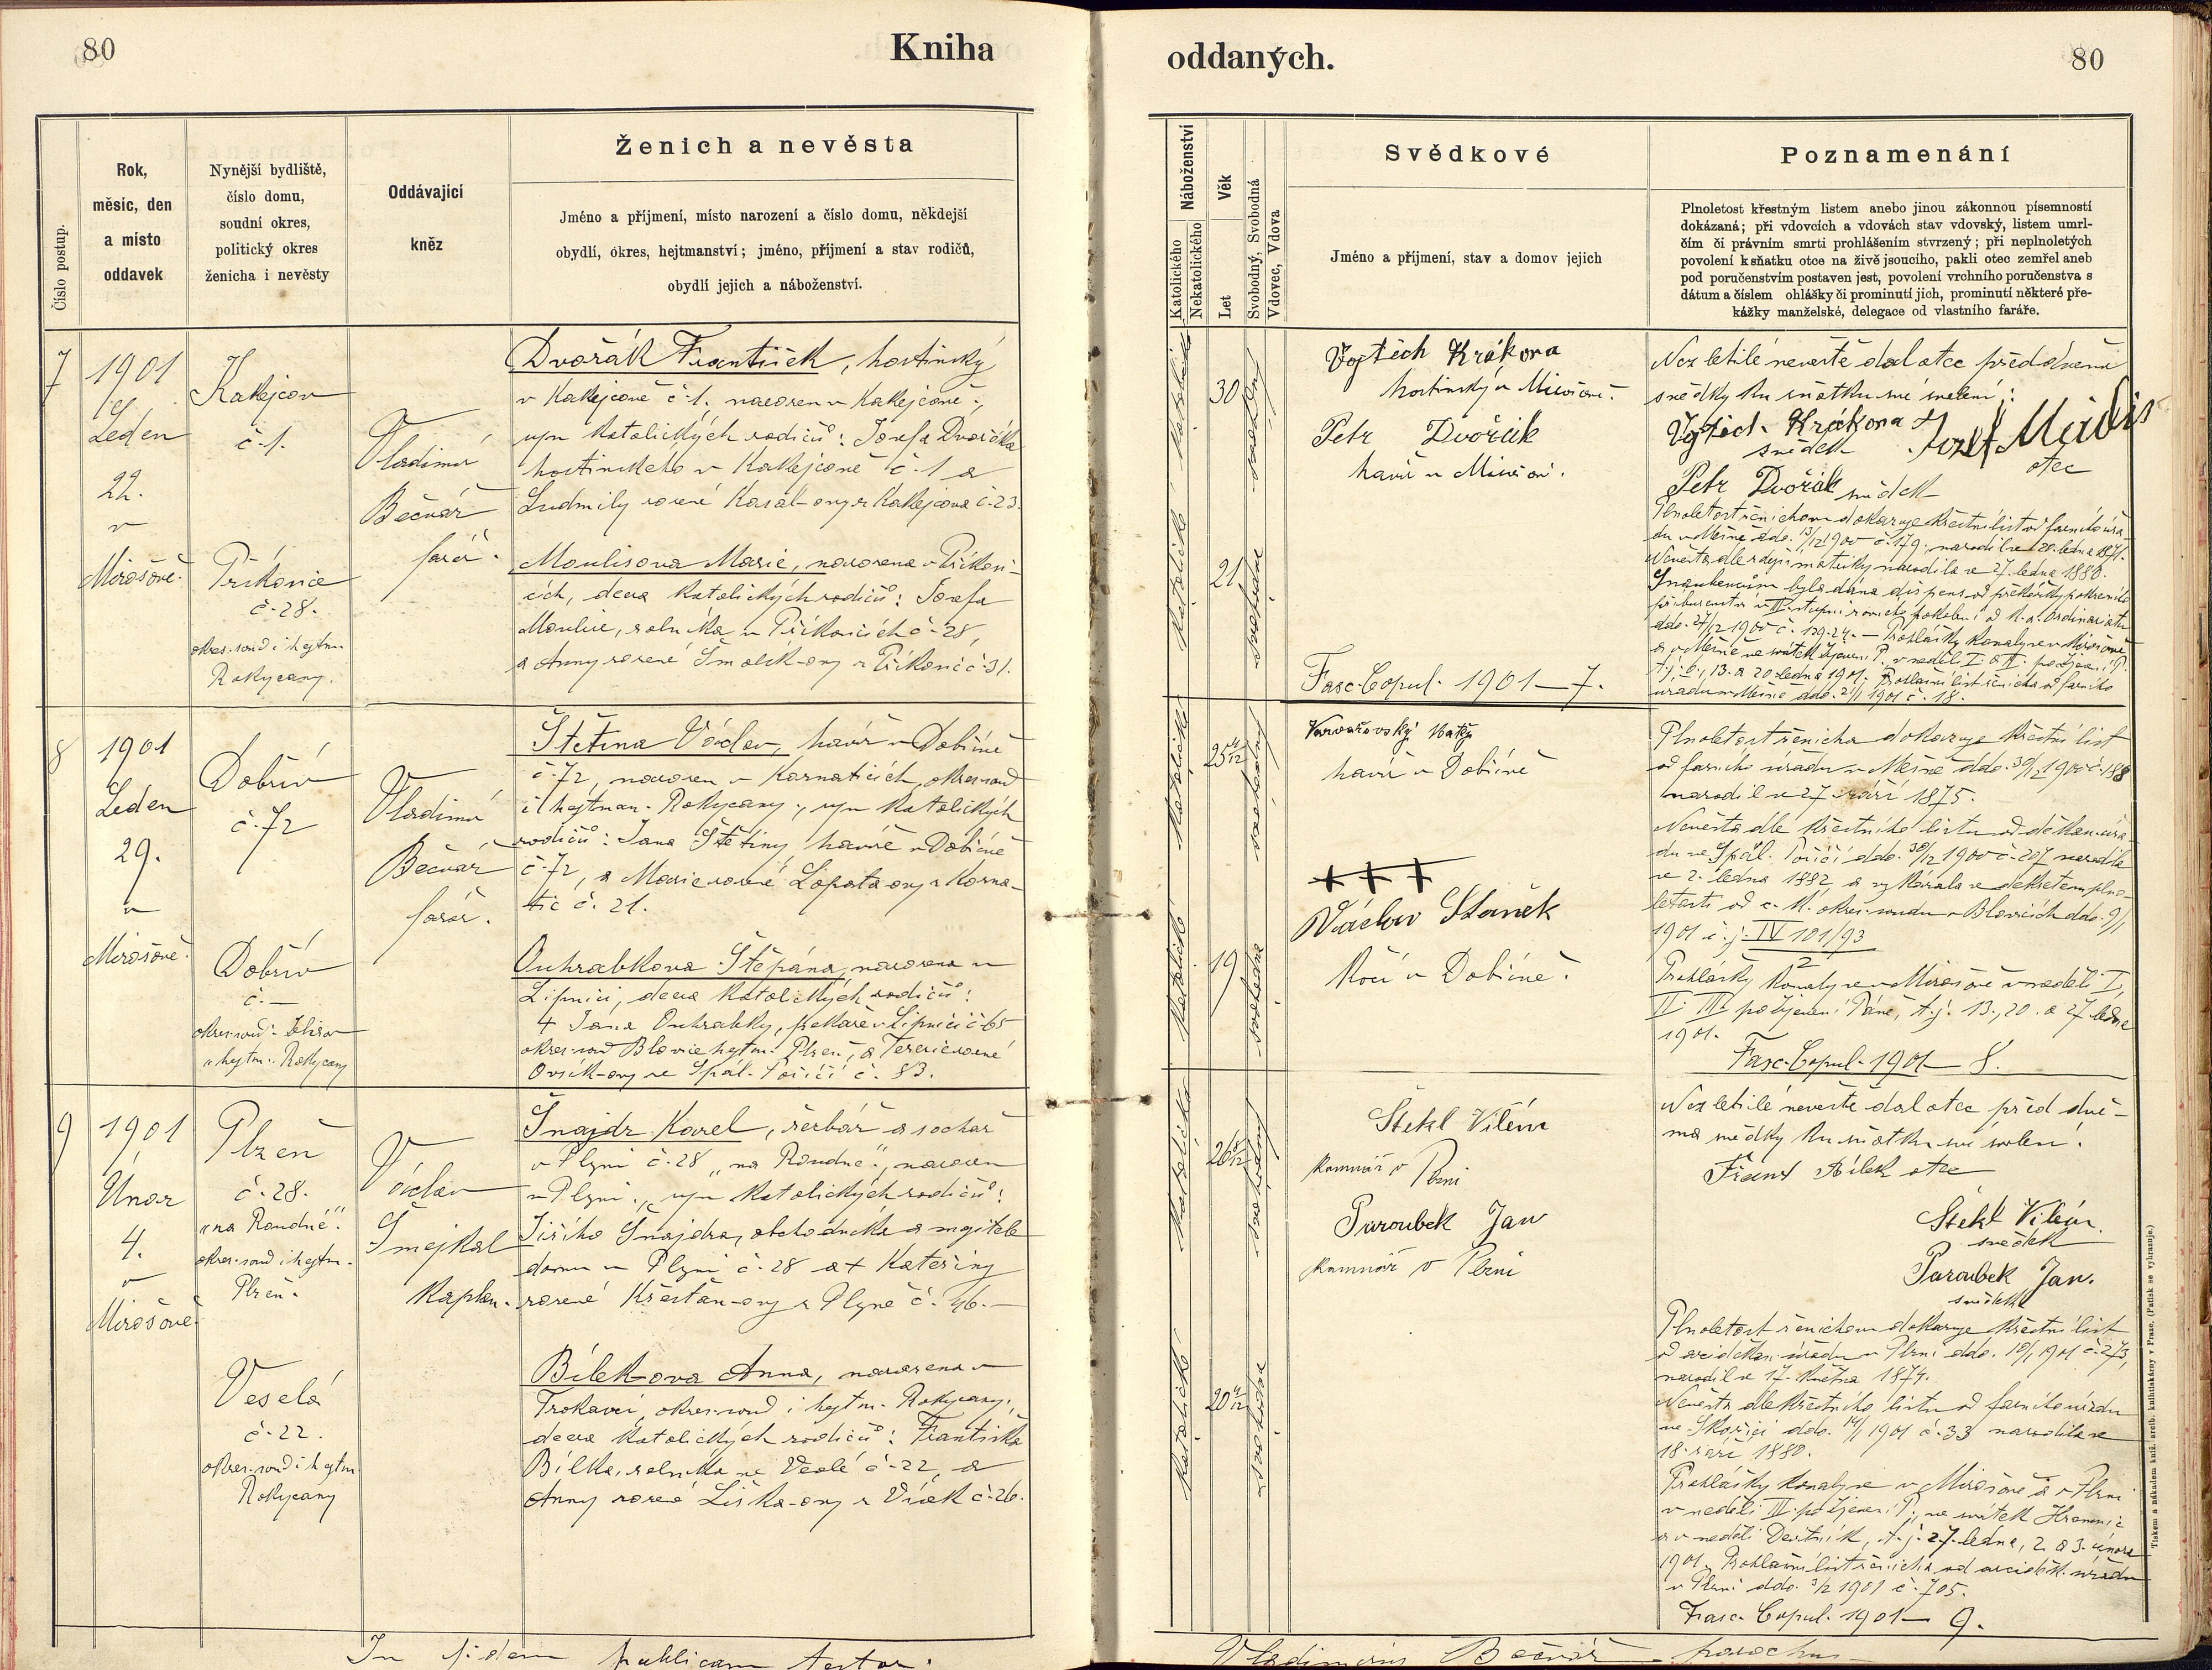 80
Kniha
Číslo postup.
Rok,
měsíc, den
a místo
oddavek
Nynější bydliště,
číslo domu,
soudní okres,
politický okres
ženicha i nevěsty
Oddávající
kněz
Ženich a nevěsta
Jméno a příjmení, místo narození a číslo domu, někdejší
obydlí, okres, hejtmanství; jméno, příjmení a stav rodičů,
obydlí jejich a náboženství.
7
1901
Leden
22.
v
Mirošově.
Kakejcov
č. 1.
Příkosice
č. 28.
okres. soud i hejtm.
Rokycany.
Vladimír
Bečvář
farář.
Dvořák František, hostinský
v Kakejcově č. 1. narozen v Kakejcově,
syn katolických rodičů: Josefa Dvořáka
hostinského v Kakejcově č. 1 a
Ludmily rozené Kasal-ovy z Kakejcova č. 23.
Moulisova Marie, narozena v Příkosi-
cích, dcera katolických rodičů: Josefa
Moulise, rolníka v Příkosicích č. 28,
a Anny rozené Smolík-ovy z Příkosic č. 31.
8
1901
Leden
29.
v
Mirošově.
Dobřív
č. 72
Dobřív
č. —
okres. soud. Zbirov
hejtm. Rokycany
Vladimír
Bečvář
farář.
Štětina Václav, havíř v Dobřívě
č. 72, narozen v Kornaticích, okres. soud
i hejtman. Rokycany, syn katolických
rodičů: Jana Štětiny havíře v Dobřívě
č. 72, a Marie rozené Lopata-ovy z Korna-
tic č. 21.
Ouhrabkova Štěpána, narozena v
Lipnici, dcera katolických rodičů:
+ Jana Ouhrabky, pekaře v Lipnici č. 65
okres. soud Blovice hejtm. Plzeň, a Terezie rozené
Ovsík-ovy ze Spál. Poříčí č. 83.
9
1901
Únor
4.
v
Mirošově.
Plzeň
č. 28.
„na Roudné“.
okres. soud i hejtm.
Plzeň.
Veselá
č. 22.
okres. soud i hejtm.
Rokycany
Václav
Smejkal
kaplan.
Šnajdr Karel, řezbář a sochař
v Plzni č. 28 „na Roudné“, narozen
v Plzni, syn katolických rodičů:
Jiřího Šnajdra, obchodníka a majitele
domu v Plzni č. 28 a + Kateřiny
rozené Křesťan-ovy z Plzně č. 46. —
Bílek-ova Anna, narozena v
Trokavci, okres. soud i hejtm. Rokycany,
dcera katolických rodičů: Františka
Bílka, rolníka ve Veselé č. 22, a
Anny rozené Liška-ovy z Vísek č. 26.
In fidem publicam testor:
oddaných.
80
Náboženství
Katolického
Nekatolického
Věk
Let
Svobodný, Svobodná
Vdovec, Vdova
Svědkové
Jméno a příjmení, stav a domov jejich
Poznamenání
Plnoletost křestným listem anebo jinou zákonnou písemností
dokázaná; při vdovcích a vdovách stav vdovský, listem umrl-
čím či právním smrti prohlášením stvrzený; při neplnoletých
povolení k sňatku otce na živě jsoucího, pakli otec zemřel aneb
pod poručenstvím postaven jest, povolení vrchního poručenstva s
dátum a číslem ohlášky či prominutí jich, prominutí některé pře-
kážky manželské, delegace od vlastního faráře.
katolické
30
svobodný
katolické
21
svobodná
Vojtěch Krákora
hostinský v Mirošově.
Petr Dvořák
havíř v Mirošově.
Fasc. Copul. 1901 — 7.
Nezletilé nevěstě dal otec před dvěma
svědky ku sňatku své svolení:
Vojtěch Krákora
svědek
Josef Moulis
otec
Petr Dvořák svědek
Plnoletost ženichovu dokazuje křestní list od farního úřa-
du v Mešně ddo. 13/12 1900 č. 179; narodil se 20. ledna 1871.
Nevěsta dle zdejší matriky narodila se 27. ledna 1880.
Snoubencům byla dána dispens od překážky pokrevního
příbuzenství
ddo. 27/12 1900 č. 12924. — Prohlášky konaly se v Mirošově
a v Mešně na svátek Zjevení P. v neděli I. a II. po Zjevení P.
t. j. 6., 13. a 20. ledna 1901. Prohlašní list ženicha od farního
úřadu v Mešně ddo. 21/1 1901 č. 18.
katolické
25 4/12
svobodný
katolické
19
svobodná
Varvařovský Matěj
havíř v Dobřívě
+ + +
Václav Staněk
kočí v Dobřívě.
Plnoletost ženicha dokazuje křestní list
od farního úřadu v Mešně ddo. 30/12 1900 č. 188
narodil se 27. září 1875.
Nevěsta dle křestního listu od děkan. úřa-
du ve Spál. Poříčí ddo. 30/12 1900 č. 207 narodila
se 2. ledna 1882, a vykázala se dekretem plno-
letosti od c. k. okres. soudu v Blovicích ddo. 9/1
1901 č. j. IV 101/93
2
Prohlášky konaly se v Mirošově v neděli I.,
II. III. po Zjevení Páně, t. j. 13., 20. a 27. ledna
1901.
Fasc. Copul. 1901 — 8.
katolické
26 8/12
svobodný
katolické
20 4/12
svobodná
Štekl Vilém
komínář v Plzni
Paroubek Jan
komínář v Plzni
Nezletilé nevěstě dal otec před dvě-
ma svědky ku sňatku své svolení:
Frant Bílek otec
Štekl Vilém.
svědek
Paroubek Jan.
svědek
Plnoletost ženichovu dokazuje křestní list
od arciděkan. úřadu v Plzni ddo. 10/1 1901 č. 273,
narodil se 17. května 1874.
Nevěsta dle křestního listu od farního úřadu
ve Skořici ddo. 14/1 1901 č. 33 narodila se
18. září 1880.
Prohlášky konaly se v Mirošově a v Plzni
v neděli III. po Zjevení P., na svátek Hromnic
a v neděli Devítník, t. j. 27. ledna, 2. a 3. února
1901. Prohlašní list ženicha od arciděk. úřadu
v Plzni ddo. 3/2 1901 č. 705.
Fasc. Copul. 1901 — 9.
Vladimirus Bečvář parochus
Tiskem a nákladem kníž. arcib. knihtiskárny v Praze. (Patisk se vyhrazuje.)